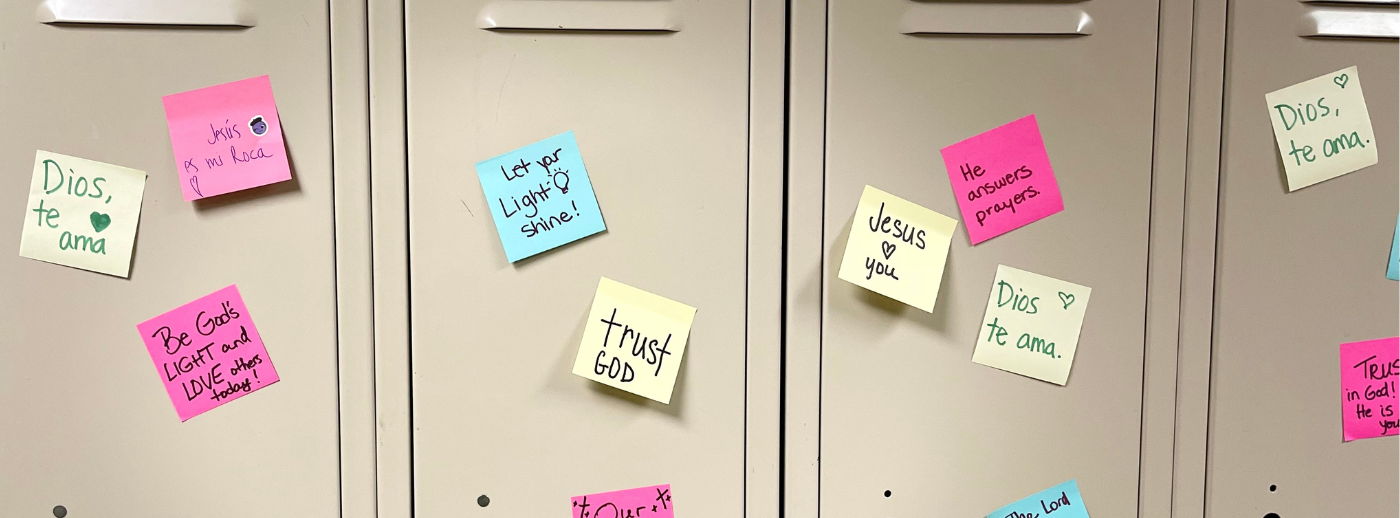 Jesús
es mi Roca
Dios,
te
ama
Be God's
LIGHT and
LOVE others
today!
Let your
Light
shine!
trust
GOD
Our
He
answers
prayers.
Jesus
you
Dios
te ama.
The Lord
Dios,
te ama.
in God!
He is